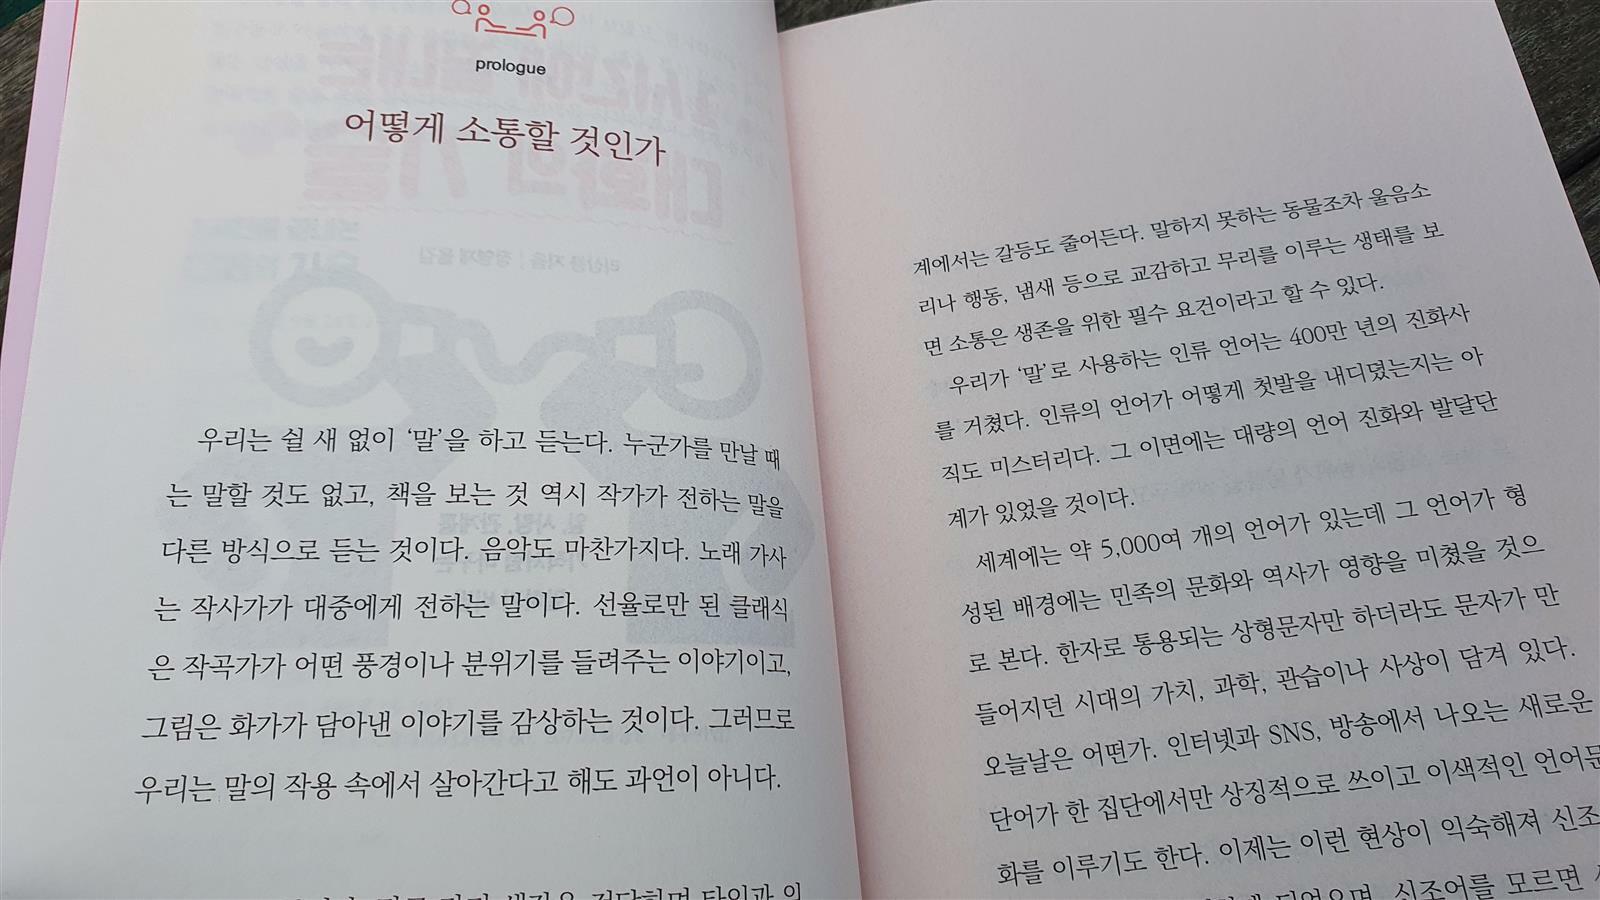 prologue
어떻게 소통할 것인가
우리는 쉴 새 없이 ‘말’을 하고 듣는다. 누군가를 만날 때
는 말할 것도 없고, 책을 보는 것 역시 작가가 전하는 말을
다른 방식으로 듣는 것이다. 음악도 마찬가지다. 노래 가사
는 작사가가 대중에게 전하는 말이다. 선율로만 된 클래식
은 작곡가가 어떤 풍경이나 분위기를 들려주는 이야기이고,
그림은 화가가 담아낸 이야기를 감상하는 것이다. 그러므로
우리는 말의 작용 속에서 살아간다고 해도 과언이 아니다.
타인과 의
계에서는 갈등도 줄어든다. 말하지 못하는 동물조차 울음소
리나 행동, 냄새 등으로 교감하고 무리를 이루는 생태를 보
면 소통은 생존을 위한 필수 요건이라고 할 수 있다.
우리가 ‘말’로 사용하는 인류 언어는 400만 년의 진화사
를 거쳤다. 인류의 언어가 어떻게 첫발을 내디뎠는지는 아
직도 미스터리다. 그 이면에는 대량의 언어 진화와 발달단
계가 있었을 것이다.
세계에는 약 5,000여 개의 언어가 있는데 그 언어가 형
성된 배경에는 민족의 문화와 역사가 영향을 미쳤을 것으
로 본다. 한자로 통용되는 상형문자만 하더라도 문자가 만
들어지던 시대의 가치, 과학, 관습이나 사상이 담겨 있다.
오늘날은 어떤가. 인터넷과 SNS, 방송에서 나오는 새로운
단어가 한 집단에서만 상징적으로 쓰이고 이색적인 언어문
화를 이루기도 한다. 이제는 이런 현상이 익숙해져 신조
되었으며, 신조어를 모르면